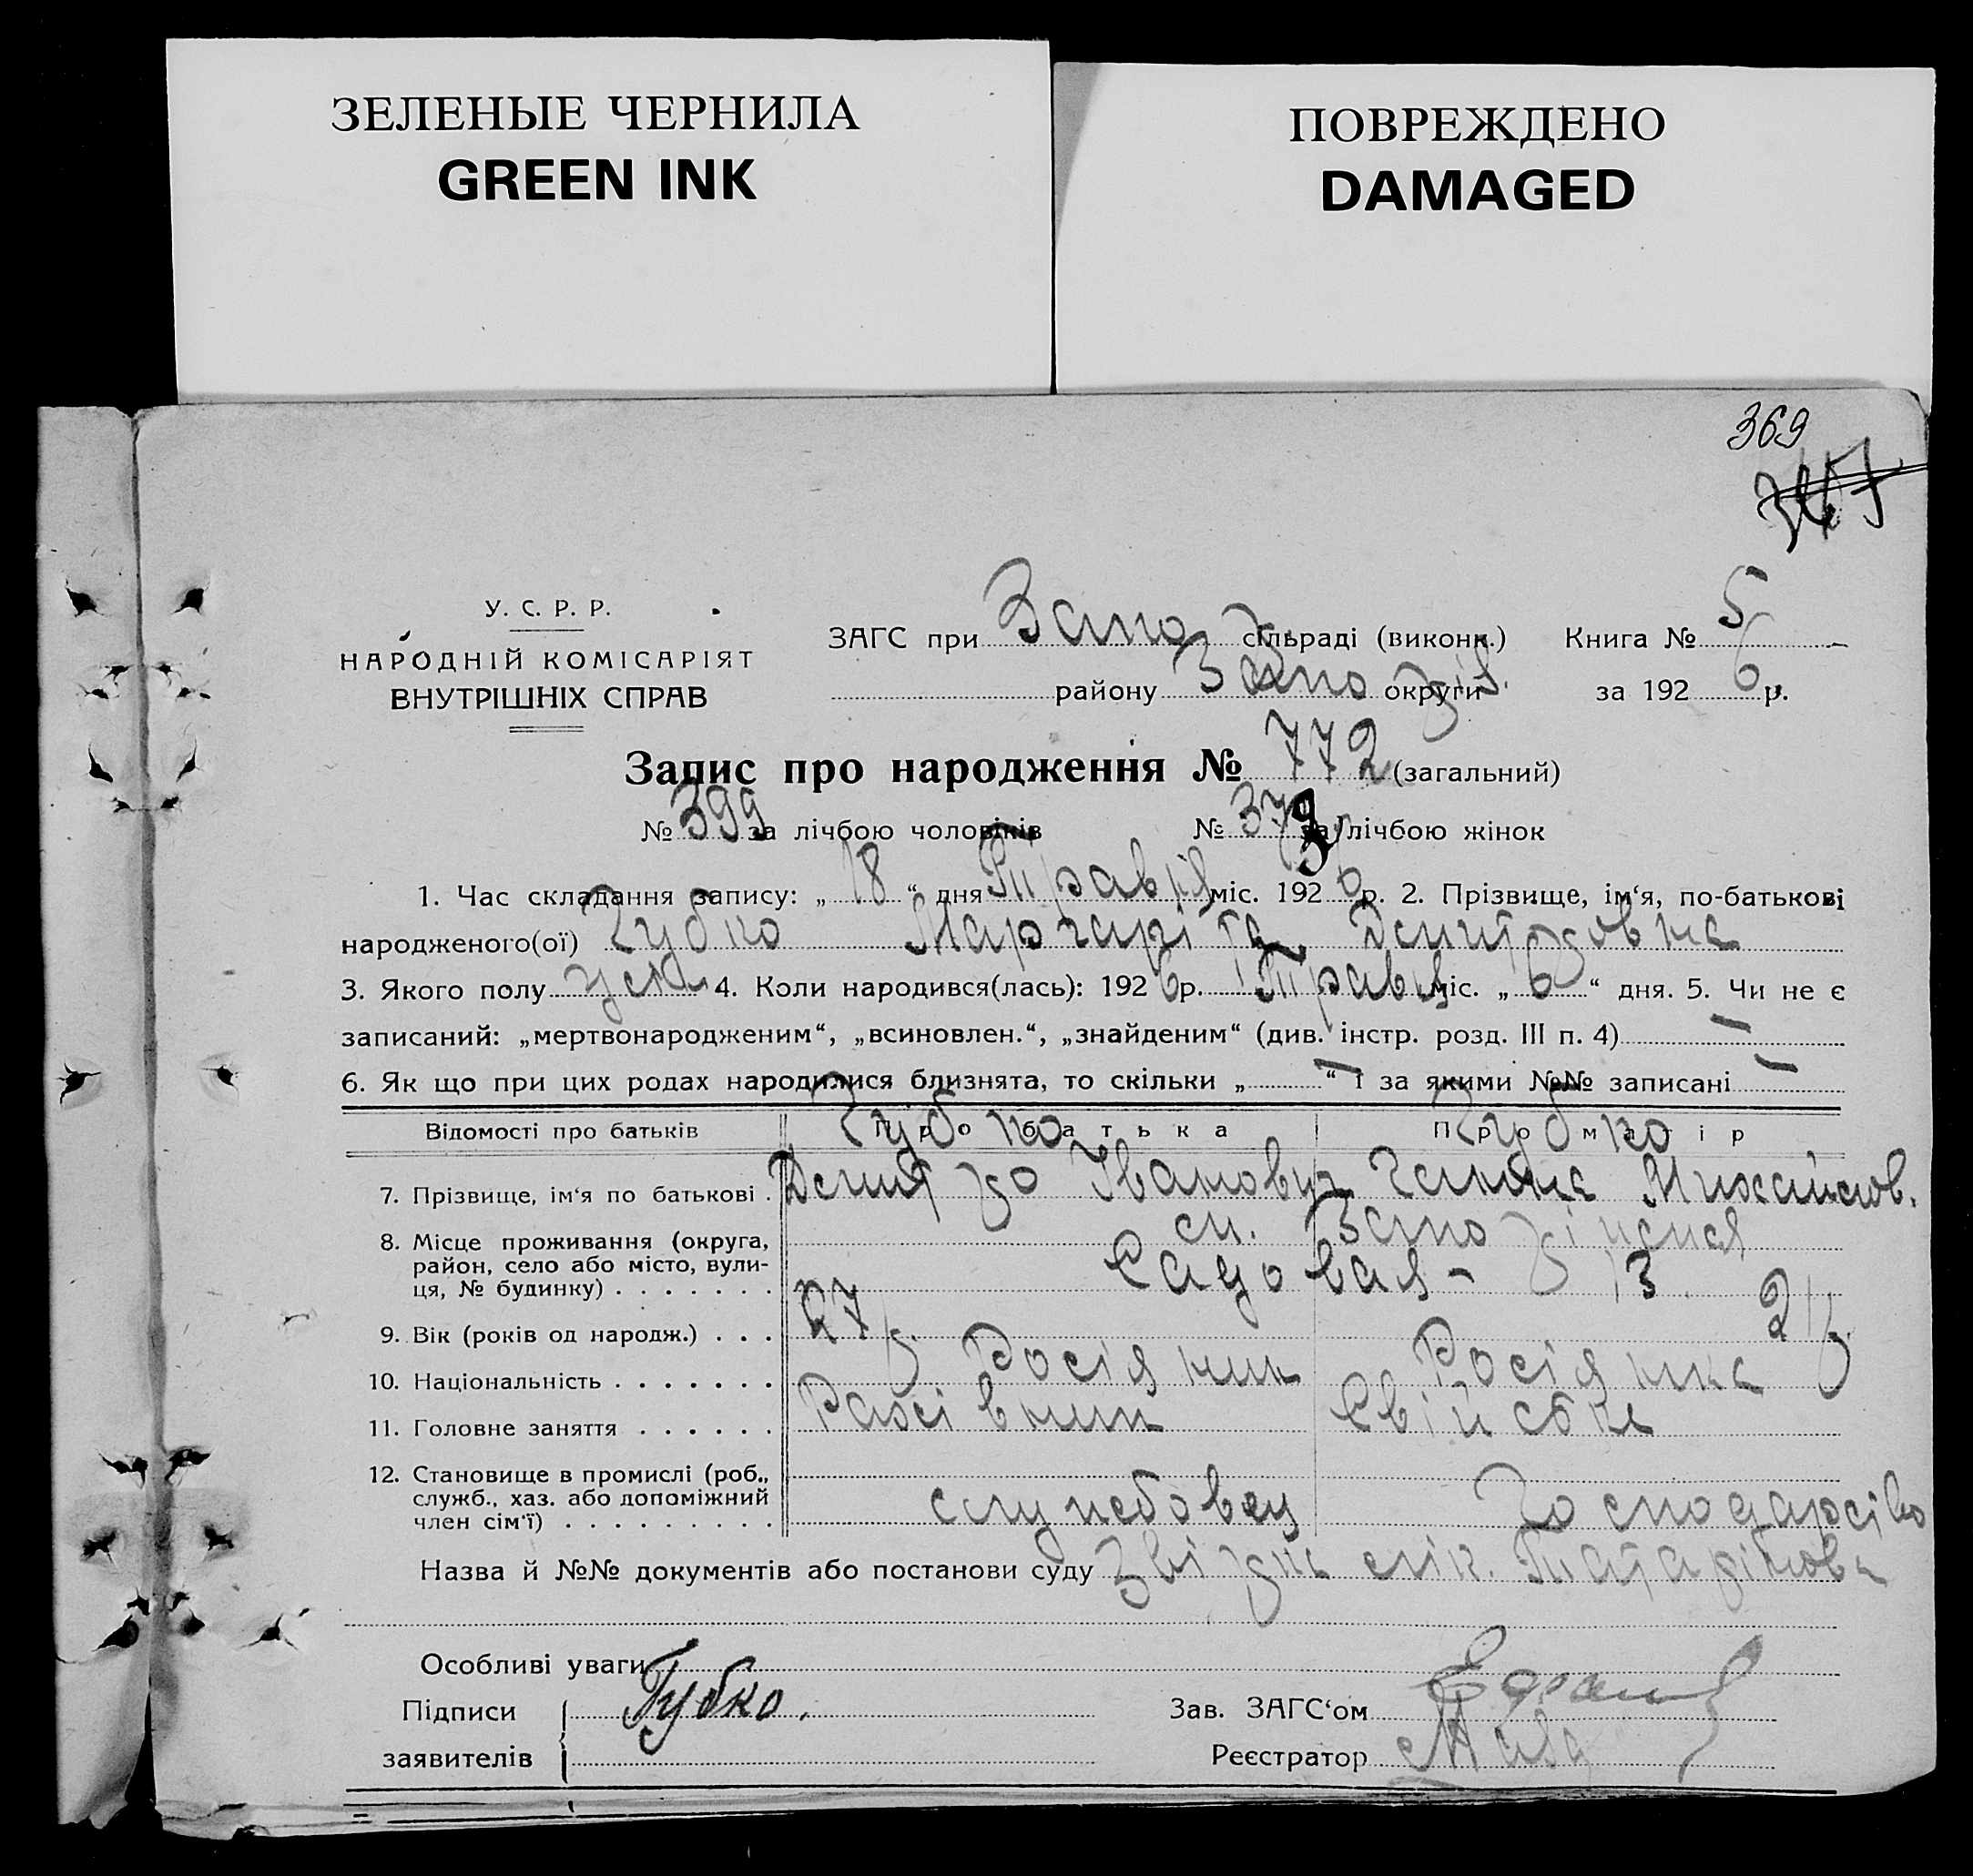 ЗЕЛЕНЫЕ ЧЕРНИЛА
GREEN INK
ПОВРЕЖДЕНО
DAMAGED
369
У. С. Р. Р.
НАРОДНІЙ КОМІСАРІЯТ
ВНУТРІШНІХ СПРАВ
ЗАГС при Запо сільраді (виконк.) Книга № 5
району Запо округи за 1926 р.
Запис про народження № 772 (загальний)
№ 399 за лічбою чоловіків № 373 за лічбою жінок
1. Час складання запису: „ 18 “ дня Травня міс. 1926 р. 2. Прізвище, ім‘я, по-батькові
народженого(ої) Губко Маргаріта Дмитровна
3. Якого полу жін 4. Коли народився(лась): 1926 р. Травня міс. „ 6 “ дня. 5. Чи не є
записаний: „мертвонародженим“, „всиновлен.“, „знайденим“ (див. інстр. розд. III п. 4) —
6. Як що при цих родах народилися близнята, то скільки „ — “ і за якими №№ записані —
Відомості про батьків Про батька Про матір
Губко Губко
7. Прізвище, ім‘я по батькові . Дмитро Іванович Михайлов.
8. Місце проживання (округа, район, село або місто, вулиця, № будинку) . . . . . . .
м. Запоріжжя
Садовая - 13
9. Вік (років од народж.) . . . 27 р. 21 р.
10. Національність . . . . . . . Росіянин Росіянка
11. Головне заняття . . . . . . Рахівник
12. Становище в промислі (роб., служб., хаз. або допоміжний член сім‘ї) . . . . . . . . . службовец Господарство
Назва й №№ документів або постанови суду лік.
Особливі уваги
Підписи заявителів Губко.
Зав. ЗАГС‘ом
Реєстратор